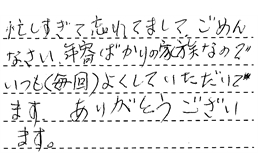 忙しすぎて忘れてまして、ごめん
なさい。年寄ばかりの家族なので
いつも(毎回)よくしていただいて
ます。ありがとうござい
ます。